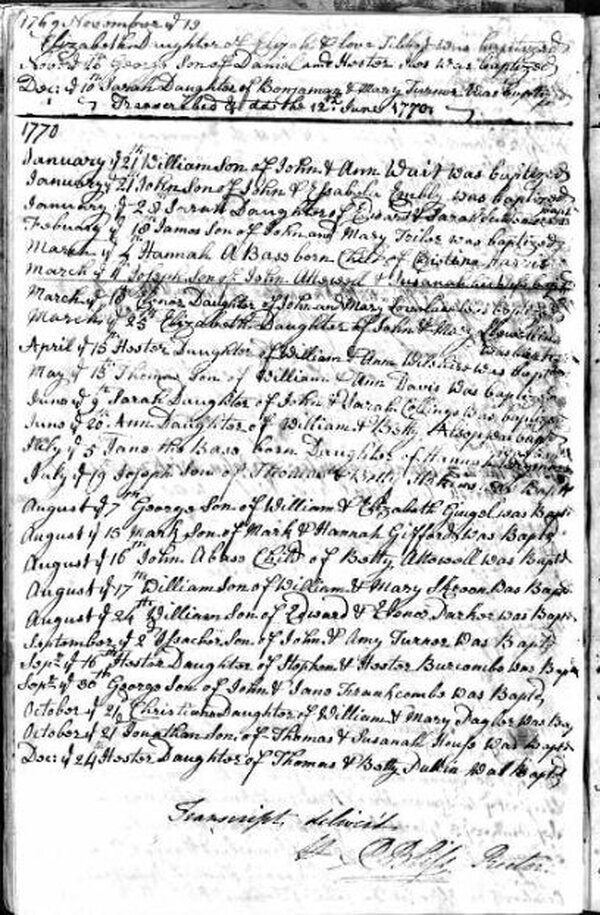 1769 November ye 19
Elizabeth Daughter of & love was baptized
Novr ye 26 George Son of Daniel and Hester was baptized
Decr ye 10th Sarah Daughter of Benjaman & Mary Turner was baptiz
Transcribed to date the 12th June 1770
1770
January ye 21th William Son of John & Ann Wait was baptized
January ye 21 John Son of John & Essabela was baptized
January ye 28 Sarah Daughter of Edward & Sarah
February ye 18 James Son of John and Mary was baptized
March ye 2th Hannah A Bass born Child of Cristena Harris
March ye 4 Joseph Son of John Attewell & Susanah
March ye 18 Elenor Daughter of John and Mary was baptized
March ye 25th Elizabeth Daughter of John & Mary
April ye 15th Hester Daughter of William & Ann Wilshire was Baptiz
May ye 13 Thomas Son of William & Ann Davis was baptized
June ye 9th Sarah Daughter of John & Sarah Collings was baptized
June ye 20th Ann Daughter of William & Betty Alsop was baptz
July ye 5 Jane the Base born Daughter of
July ye 19 Joseph Son of Thomas & Betty was Baptd
August ye 7th George Son of William & Elizabeth Gingel was Bapt
August ye 15 Mark Son of Mark & Hannah Gifford was Baptd
August ye 16th John A base Child of Betty Attewell was Baptd
August ye 17th William Son of William & Mary was Bapt
August ye 24th William Son of Edward & Elenor Parker was Bapt
September ye 2d Issachar Son of John & Amy Turner was Baptd
Sepr ye 16th Hester Daughter of Stephen & Hester Burcombe was Bapt
Sepr ye 30th George Son of John & Jane Frankcombe was Baptd
October ye 21 Christian Daughter of William & Mary Taylor was Bap
October ye 21 Jonathan Son of Thomas & Susanah House was Baptd
Decr ye 24 Hester Daughter of Thomas & Betty was Baptd
Transcript deliver'd
Rector